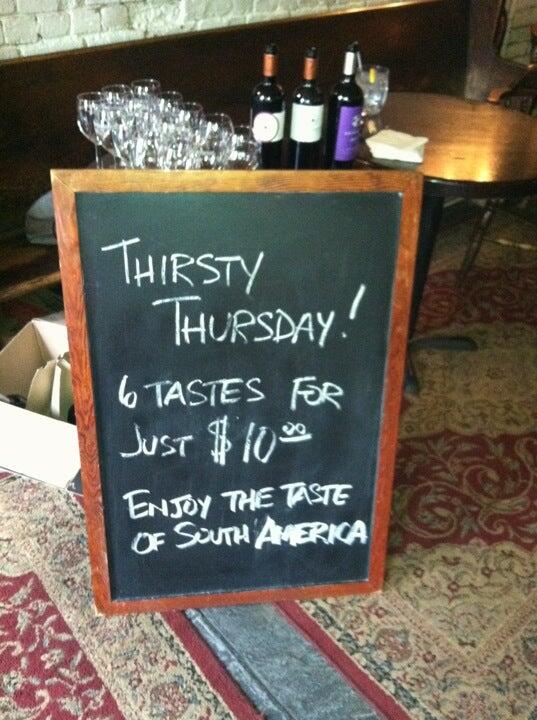 THIRSTY
THURSDAY!
6 TASTES FOR
JUST $10.00
ENJOY THE TASTE
OF SOUTH AMERICA